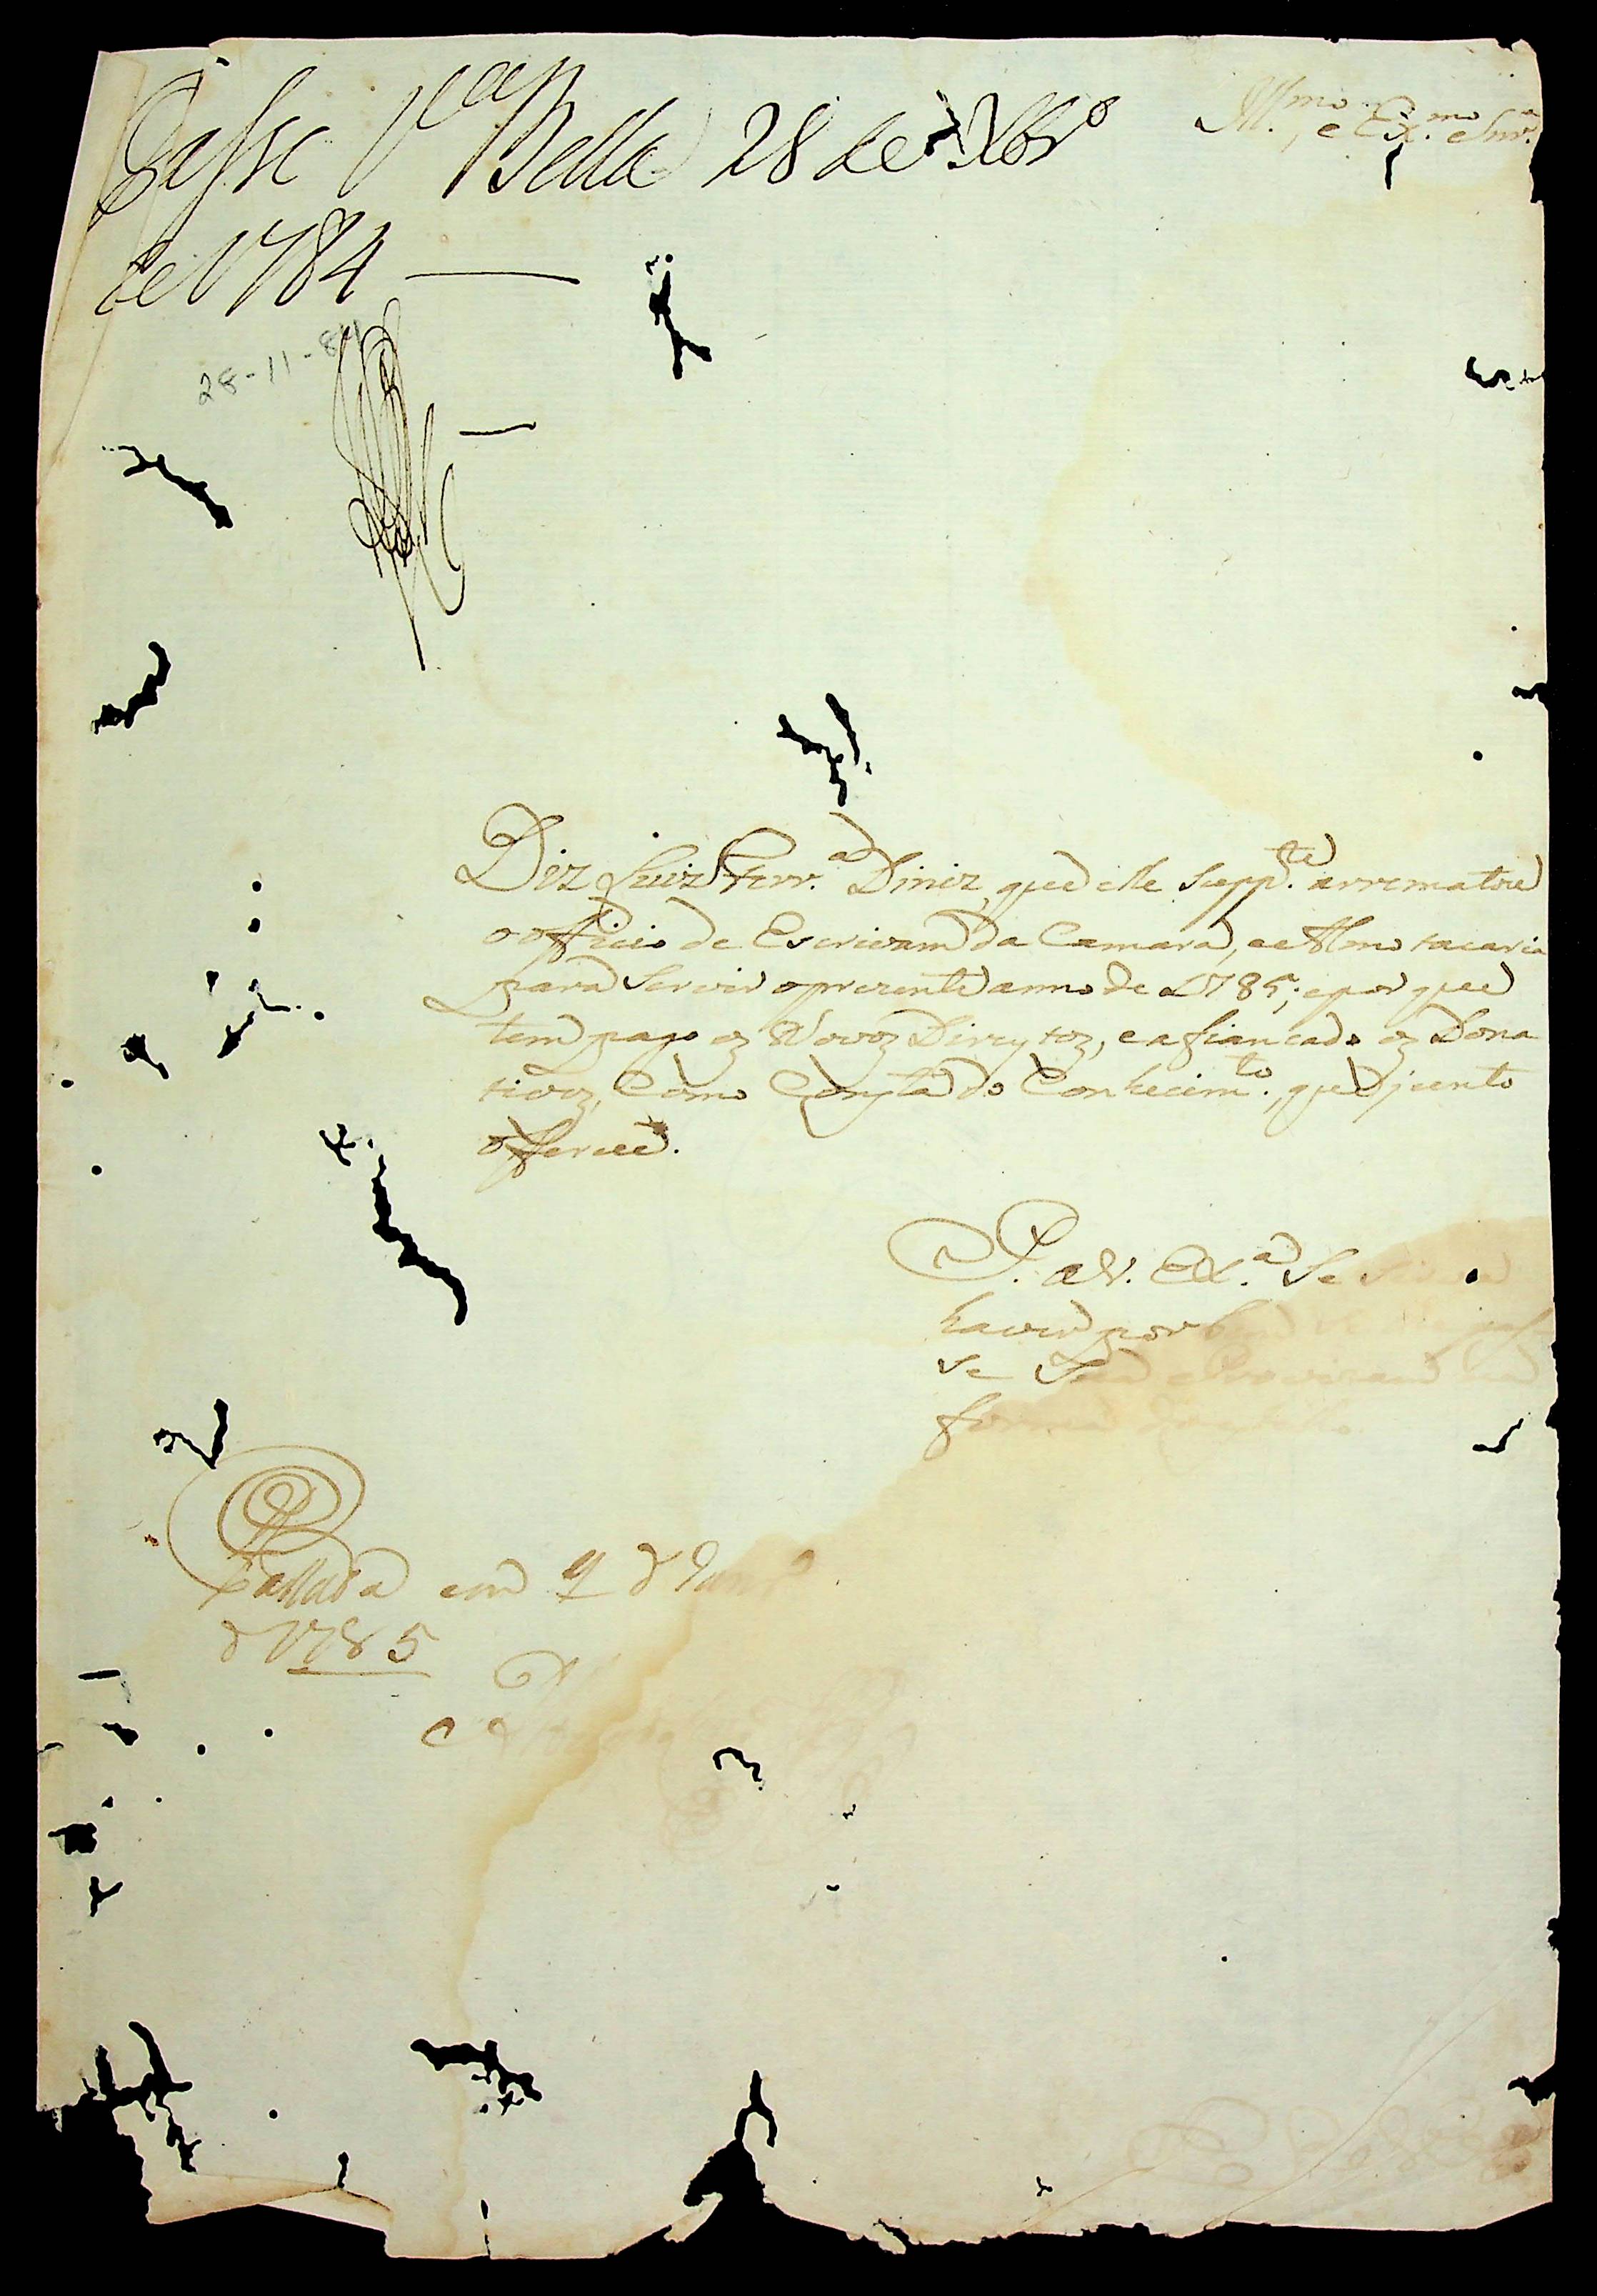 Passe V.ª Bella 28 de 9br.º
de 1784
Ill.mo, e Ex.mo Snr.
28-11-84
Diz Luiz Ferr.ª Diniz, que elle Supp.te arrematou
o officio de Escrivam da Camara, e Almotacaria
para Servir o prezente anno de 1785; e por que
tem pago oz Novoz Direytoz, e afiancado oz Dona
tivoz, Como Consta do Conhecim.to, que junto
offerece.
P. a V. Ex.ª Se
haver por bem
se
forma
Passada em 9 d Janr.º
d 1785